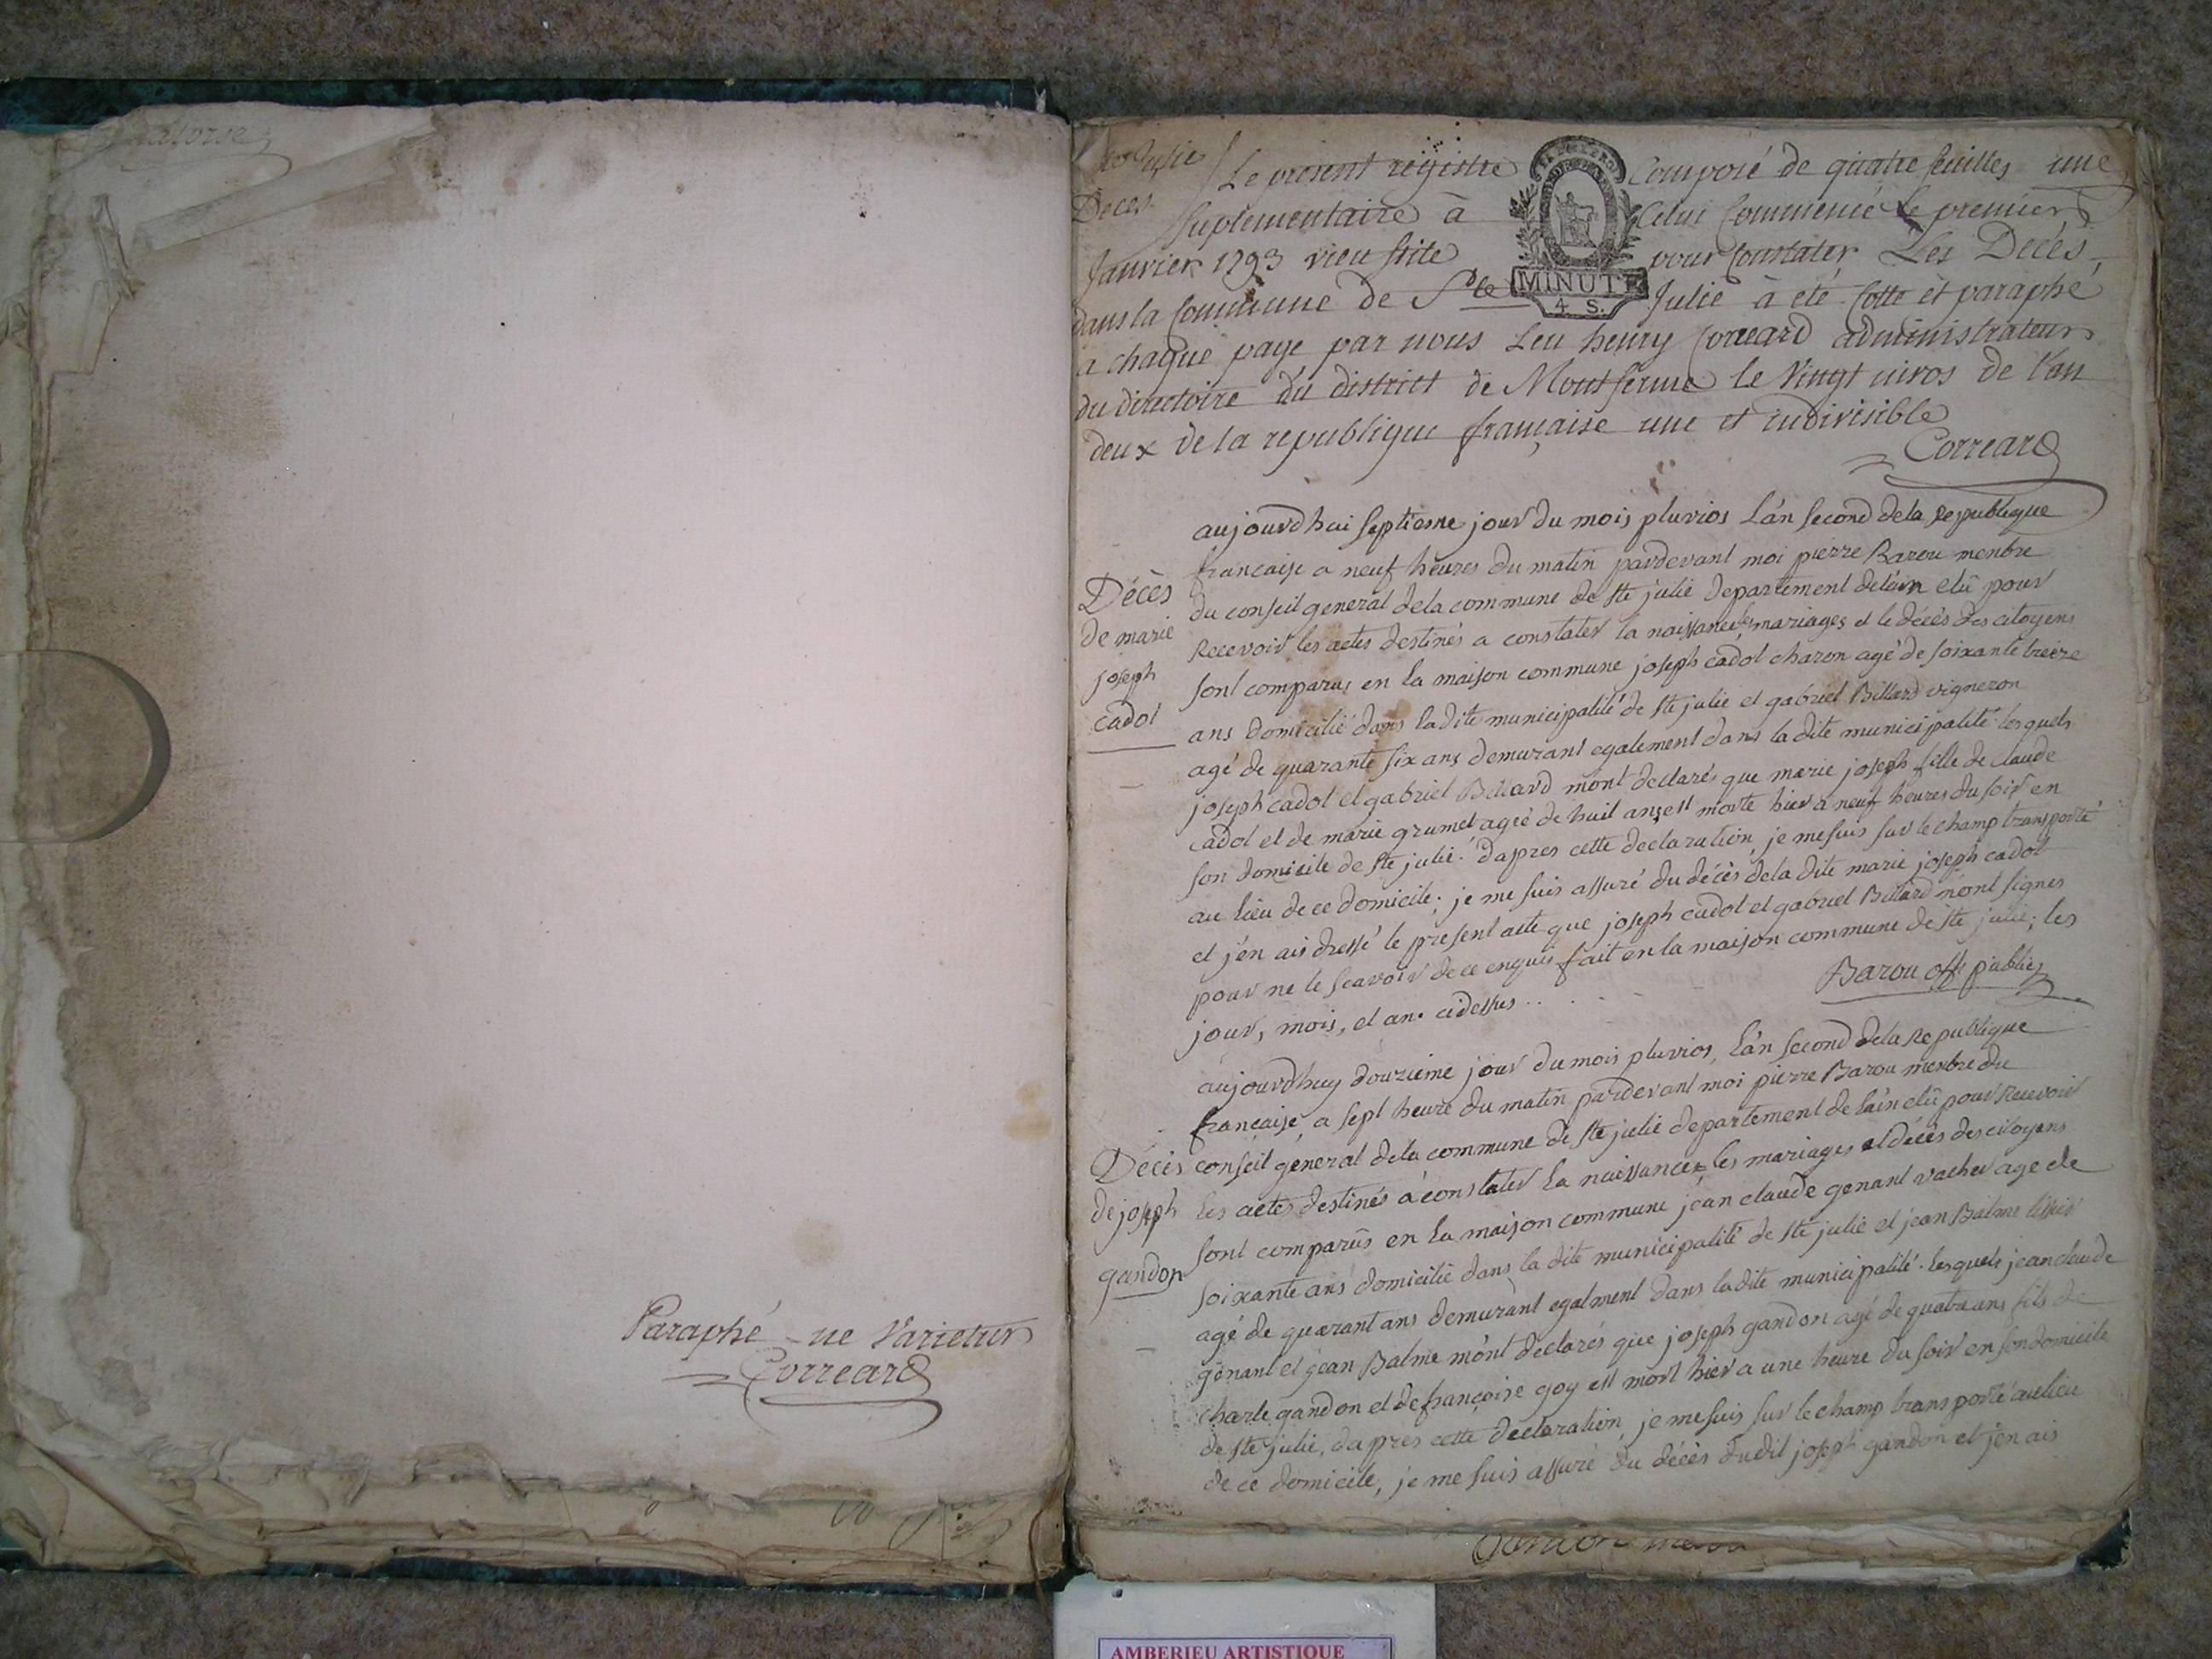 Paraphé ne Varietur
Correard
Ste Julie
Deces
Le présent régistre Composé de quatre feuilles une
suplementaire à Celui Commencé le premier
Janvier 1793 vieu stile pour Constater Les Décès
dans la Commune de Ste Julie à eté Cotté et paraphé
a chaque page par nous Leu henry Correard administrateur
du directoire du district de Montferme le Vingt nivos de l'an
deux de la republique française une et indivisible
Correard
MINUTE
4 S.
aujourdhui septiesme jour du mois pluvios L'an second dela republique
francaise a neuf heures du matin pardevant moi pierre Barou menbre
du conseil general dela commune de ste julie departement delain elû pour
Recevoir les actes destinés a constater la naissance les mariages et le décès des citoyens
sont comparus en la maison commune joseph cadol charon agé de soixante treize
ans domicilié dans ladite municipalité de ste julie et gabriel Billard vigneron
agé de quarante six ans demurant egalement dans la dite municipalité lesquels
joseph cadol et gabriel Billard mont declarés que marie joseph fille de claude
cadol et de marie grumet ageé de huit ans est morte hier a neuf heures du soir en
son domicile de ste julie. dapres cette declaration, je me suis sur le champ transporté
au lieu de ce domicile; je me suis assuré du décès dela dite marie joseph cadol
et j'en ais dressé le present acte que joseph cadol et gabriel Billard n'ont signes
pour ne le scavoir de ce enquis fait en la maison commune de ste julie; les
jour, mois, et an. cidessus
Barou off public
Décès
de marie
joseph
cadol
aujourdhuy douzieme jour du mois pluvios, L'an second dela Republique
francaise, a sept heure du matin pardevant moi pierre Barou menbre du
conseil general dela commune de ste julie departement de lain elû pour Recevoir
les actes destinés a constater la naissances les mariages et décès des citoyens
sont comparûs en la maison commune jean claude genant vacher age de
soixante ans domicilié dans la dite municipalité de ste julie et jean Balme tissier
agé de quarant ans demurant egalment dans ladite municipalité. lesquels jean claude
genant et jean Balme m'ont declarés que joseph gandon agé de quatre ans fils de
charle gandon et de françoise goy est mort hier a une heure du soir en son domicile
de ste julie, dapres cette declaration, je me suis sur le champ transporté au lieu
de ce domicile, je me suis assuré du décès dudit joseph gandon et j'en ais
Décès
de joseph
gandon
AMBERIEU ARTISTIQUE